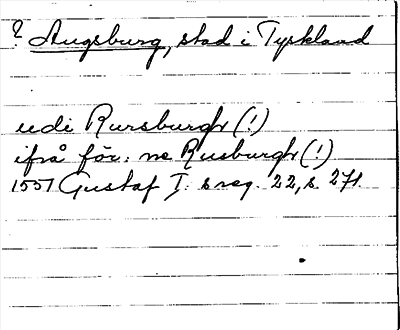 ? Augsburg, stad i Tyskland
udi Rursburgh (!)
ifrå för: ne Rusburgh (!)
1557 Gustaf I: s reg. 22, s. 271.